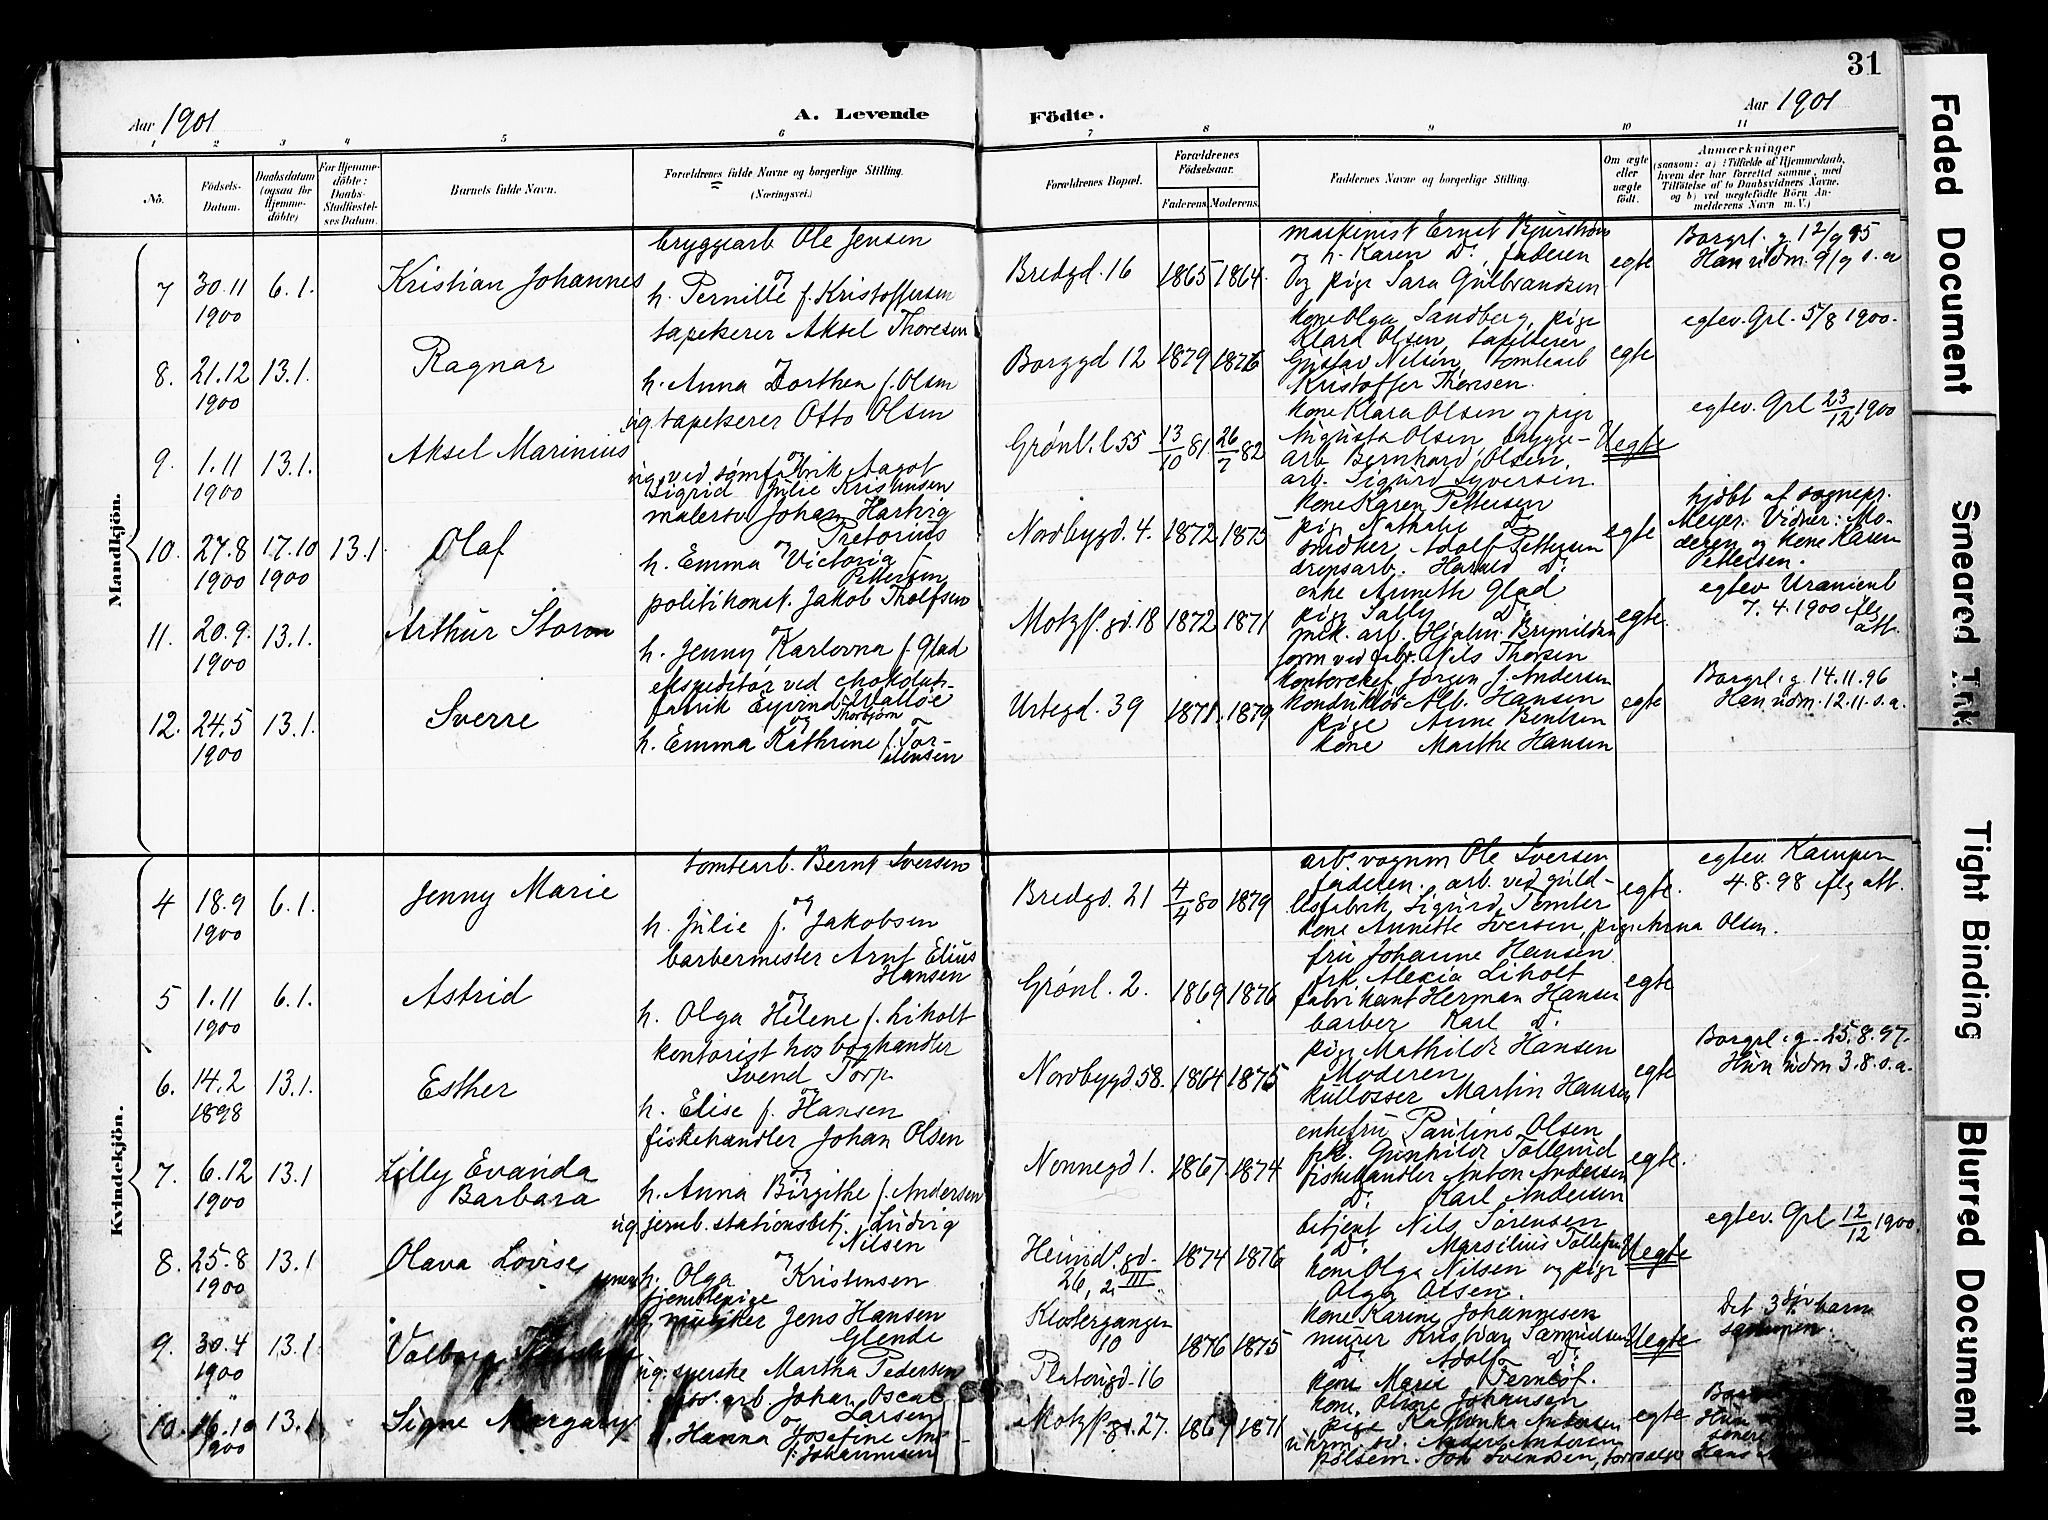 31
Aar 1901
A. Levende
Födte.
Aar 1901
1 2 3 4 5 6 7 8 9 10 11
Nö.
Födsels-
Datum.
Daabsdatum
(ogsaa for
Hjemme-
döbte)
For Hjemme-
döbte:
Daabs-
Stadfæstel-
ses Datum.
Barnets fulde Navn.
Forældrenes fulde Navne og borgerlige Stilling.
(Næringsvei.)
Forældrenes Bopæl.
Forældrenes
Födselsaar.
Faderens. Moderens.
Faddernes Navne og borgerlige Stilling.
Om ægte
eller
uægte
födt.
Anmærkninger
(saasom: a) i Tilfælde af Hjemmedaab,
hvem der har forrettet samme, med
Tilföielse af to Daabsvidners Navne,
og b) ved uægtefödte Börn An-
melderens Navn m. V.)
Mandkjön.
7
30.11
1900
6.1.
Kristian Johannes
bryggearb Ole Jensen
og
h. Pernille f. Kristoffersen
Bredgd. 16
1865 1864.
maskinist Ernst Bjurstrøm
og h. Karen Do., faderen
og pige Sara Gulbrandsen
egte
Borgrl. g. 12/9 95
Han udm. 9/9 s.a
8.
21.12
1900
13.1.
Ragnar
tapetserer Aksel Thoresen
h. Anna Dorthea f. Olsen
Borggd 12
1879 1876
kone Olga Sandberg, pige
Klara Olsen, tapetserer
Gustav Nilsen, tomtearb
Kristoffer Thoresen.
egte
egtev. Grl. 5/8 1900.
9.
1.11
1900
13.1.
Aksel Marinius
ug. tapetserer Otto Olsen
og
ug. ved sømfabrik Aagot
Sigrid Julie Kristensen
Grønl. l 55
13/10 81. 26/7 82
kone Klara Olsen og pige
Augusta Olsen, brygge-
arb. Bernhard Olsen,
arb. Sigurd Syversen.
Uegte
egtev. Grl 23/12 1900
10.
27.8
1900
17.10
1900
13.1
Olaf
malersv Johan Hartvig
Pretorius
og
h. Emma Victoria f.
Pettersen
Nordbygd. 4.
1872. 1875
kone Karen Pettersen
pige Nathalie Do.
snidker Adolf Pettersen
drepsarb. Harald Do.
egte
hjdbt af sognepr.
Meyer. Vidner: Mo-
deren og kone Karen
Pettersen.
11.
20.9.
1900
13.1.
Arthur Storm
politikonst. Jakob Tholfsen
og
h. Jenny Karlovna f. Glad
Motzf. gd. 18
1872 1871
enke Annette Glad
pige Sally Do.
mek. arb. Hjalm. Brynildsen
form ved fabr. Nils Thorsen
egte.
egtev Uranienb
7. 4. 1900 iflg
att.
12.
24.5
1900
13.1.
Sverre
ekspeditør ved chokolade-
fabrik Eyvind Walløe
og
h. Emma Kathrine f. Tor-
stensen
Urtegd. 39
1871. 1879
kontorchef Jørgen J. Andersen
konduktør Alb. Hansen
pige Anne Bentsen
kone Marthe Hansen
egte
Borgrl. g 14.11.96
Han udm. 12.11.s.a.
Kvindekjön.
4
18.9
1900
6.1.
Jenny Marie
tomtearb. Bernt Iversen
og
h. Julie f. Jakobsen
Bredgd. 21
4/4 80 1879
arb. vognm Ole Iversen
faderen. arb. ved guld-
listfabrik Sigurd Temter
kone Annette Iversen, pige Anna Olsen.
egte.
egtev Kampen
4.8.98 iflg att.
5
1.11
1900
6.1.
Astrid
barbermester Arnt Elius
Hansen
og
h. Olga Helene f. Liholt
Grønl. 2.
1869 1876
fru Johanne Hansen
frk. Alexia Liholt
fabrikant Herman Hansen
barber Karl Do.
egte
6.
14.2
1898
13.1.
Esther
kontorist hos boghandler
Svend Torp
og
h. Elise f. Hansen
Nordbygd 58.
1864 1875
pige Mathilde Hansen
Moderen
kullosser Martin Hansen
egte
Borgrl. g. 25.8.97.
Hun udm 3.8.s.a.
7.
6.12
1900
13.1
Lilly Evanda
Barbara
fiskehandler Johan Olsen
og
h. Anna Birgithe f. Andersen
Nonnegd 1.
1867. 1874
enkefru Pauline Olsen
frk. Gunhilde Tollerud
fiskehandler Anton Andersen
Do. Karl Andersen
egte.
8.
25.8
1900
13.1
Olava Lovise
ug. jernb. stationsbetj. Ludvig
Nilsen
og
h. Olga Kristensen
tjenstepige
Heimd. gd-
26, 2. III
1874 1876
betjent Nils Sørensen
Do. Marsilius Tollefsen
kone Olga Nilsen og pige
Olga Olsen.
Uegte
egtev. Grl 12/12 1900.
9.
30.4
1900
13.1
Valborg
musiker Jens Hansen
Glende
og
ug. syerske Martha Pedersen
Klostergangen
10
Platousgd. 16
1876 1875
kone Karine Johannesen
murer Kristian Samuelsen
Do. Adolf Do.
kone Marie Fernløf.
Uegte
Det 3die barn
sammen.
10.
16.10
1900
13.1
Signe Margary
arb. Johan Oscar
Larsen
og
h. Hanna Josefine An-
f. Johannesen
Motzf. gd. 27.
1869 1871
kone Oline Johansen
pige Kathinka Andersen
uhrm. sv. Anders Andersen
pølsem. Joh Svendsen,
egte
Hun
Hans
Faded Document
Smeared Ink
Tight Binding
Blurred Document